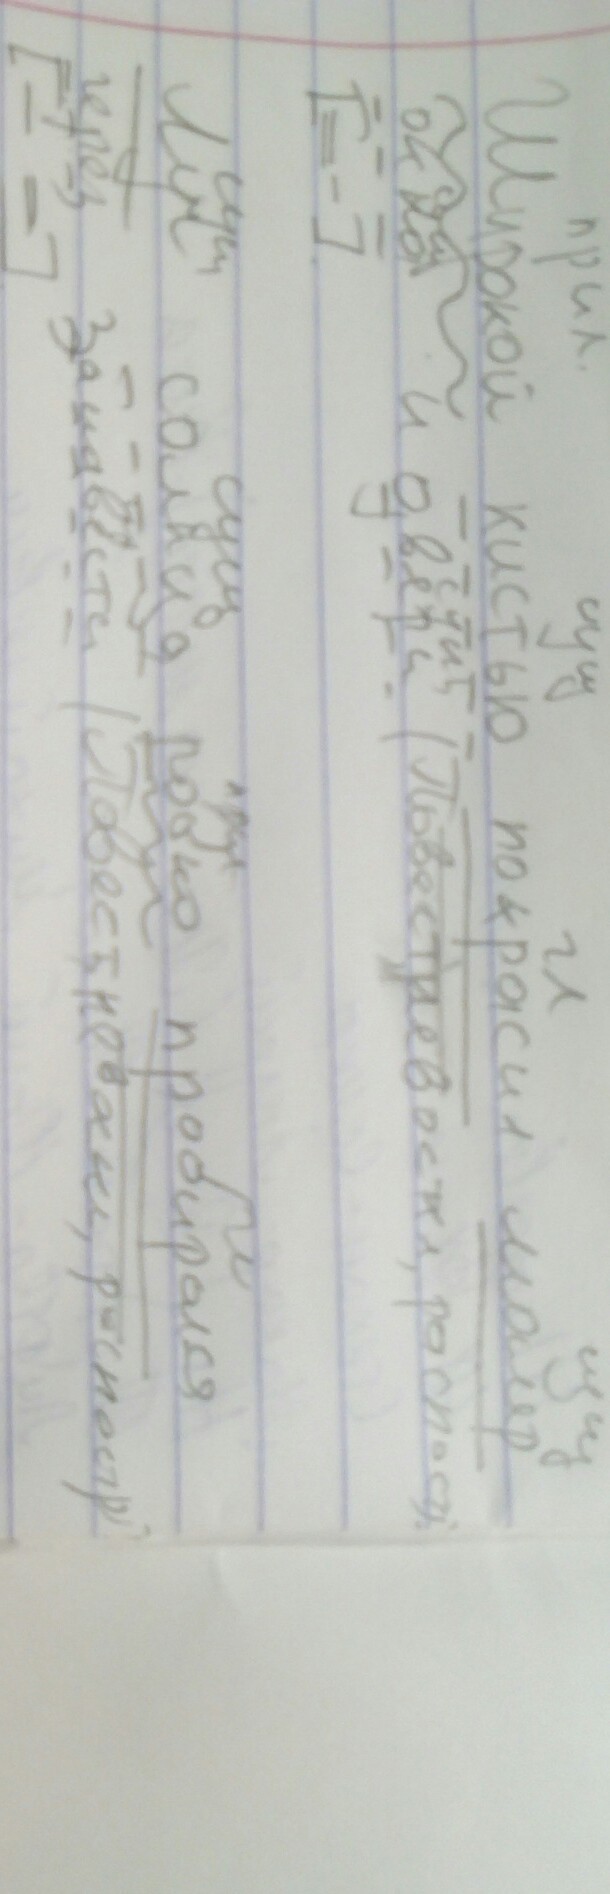 прил. сущ гл сущ
Широкой кистью покрасил маляр
сущ сущ
окна и двери (Повествоват, распост
[= - ]
сущ сущ прил гл
Луч солнца робко пробирался
сущ
через занавески (Повествоват, распостр
[- =]